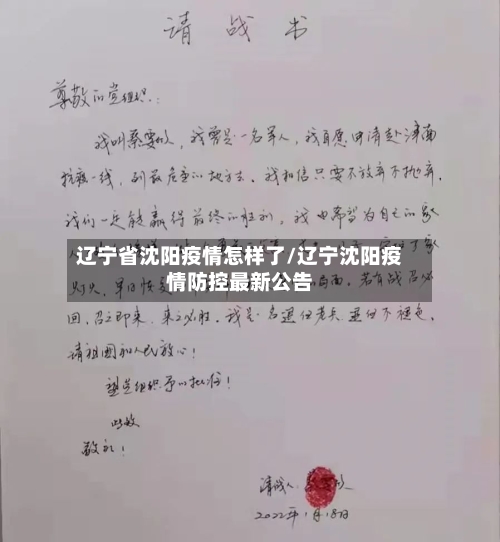 请战书
尊敬的党组织:
我叫蔡要, 我曾是一名军人, 我自愿申请赴津南
抗疫一线, 到最危重的地方去. 我相信只要不放弃不抛弃.
我们一定能赢得最终的胜利, 我也希望为自己的家
辽宁省沈阳疫情怎样了/辽宁沈阳疫
情防控最新公告
灯火, 早日恢复 若有战召必
回, 召之即来. 来之必胜. 我是一名退伍老兵 退伍不褪色.
请祖国和人民放心!
望党组织予以批准!
此致
敬礼!
请战人:
2022年1月18日